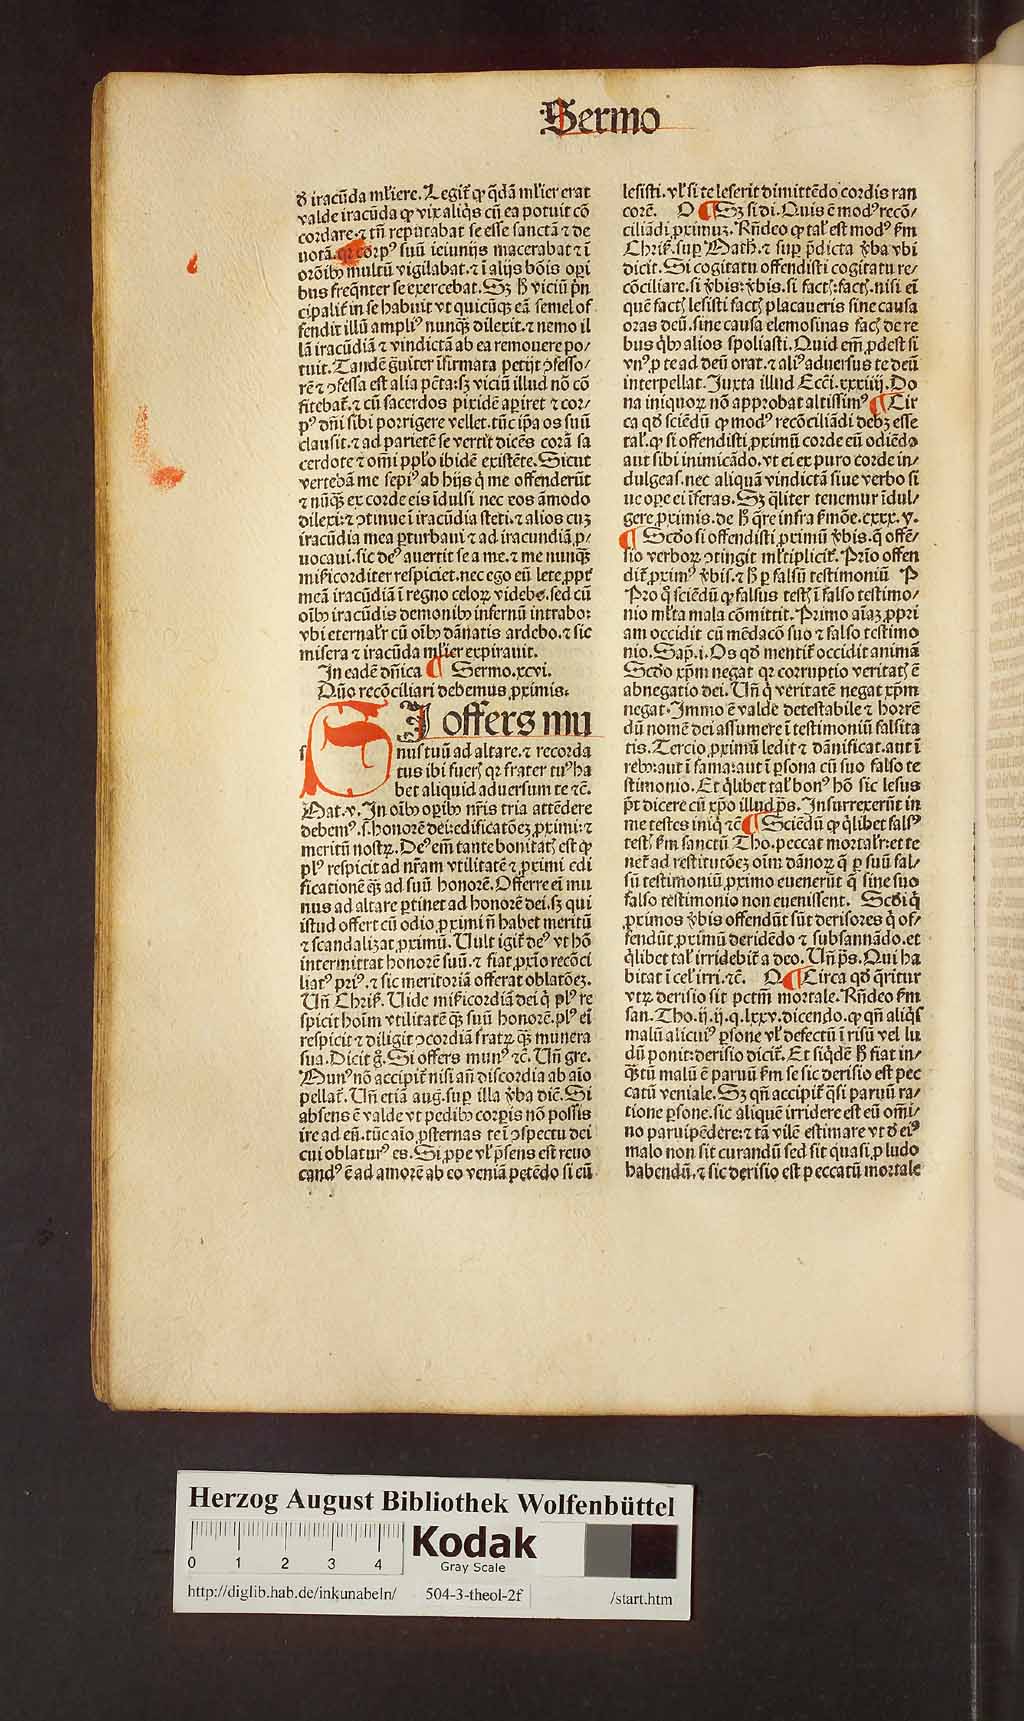 Sermo
ꝺ iracūda mĺiere. Legit᷑ ꝙ q̄dā mĺier erat
valde iracūda ꝙ vix aliq̇s cū ea potuit cō
cordare. ⁊ tn̄ reputabat se esse sanctā ⁊ de
uotā. qꝛ corpꝰ suū ieiunijs macerabat ⁊ ī
orōibꝰ multū vigilabat. ⁊ ī alijs bōis oꝑi
bus freq̄nter se exercebat. Sꝫ ħ viciū pͥn
cipalit᷑ in se habuit vt quicūqꝫ eā semel of
fendit illū ampliꝰ nunqꝫ dilexit. ⁊ nemo il
lā iracūdiā ⁊ vindictā ab ea remouere po/
tuit. Tandē ḡuiter īfirmata petijt ↄfesso/
rē ⁊ ↄfessa est alia pctā: sꝫ viciū illud nō cō
fitebat᷑. ⁊ cū sacerdos pixidē aꝑiret ⁊ cor/
pꝰ dn̄i sibi porrigere vellet. tūc ip̄a os suū
clausit. ⁊ ad parietē se vertit dicēs corā sa
cerdote ⁊ om̄i ppĺo ibidē existēte. Sicut
vertebā me sepiꝰ ab hijs q̇ me offenderūt
⁊ nūqꝫ ex corde eis īdulsi nec eos āmodo
dilexi: ⁊ ↄtinue ī iracūdia steti. ⁊ alios cuꝫ
iracūdia mea ꝑturbaui ⁊ ad iracundiā ꝓ/
uocaui. sic deꝰ auertit se a me. ⁊ me nunqꝫ
miẜicorditer respiciet. nec ego eū lete ꝓpt᷑
meā iracūdiā ī regno celoꝝ videbo. sed cū
oībꝰ iracūdis demonibꝰ infernū intrabo:
vbi eternaĺr cū oībꝰ dānatis ardebo. ⁊ sic
misera ⁊ iracūda mĺier expirauit.
In eadē dn̄ica ¶ Sermo. xcvi.
Qūo recōciliari debemus ꝓximis.
SI offers mu
nus tuū ad altare. ⁊ recorda
tus ibi fuerꝭ qꝛ frater tuꝰ ha
bet aliquid aduersum te ⁊c̄.
Mat. v. In oībꝰ oꝑibꝰ nr̄is tria attēdere
debemꝰ. ſ. honorē dei: edificatōeꝫ ꝓximi: ⁊
meritū nostꝝ. Deꝰ em̄ tante bonitatꝭ est ꝙ
plꝰ respicit ad nr̄am vtilitatē ⁊ ꝓximi edi
ficationē qꝫ ad suū honorē. Offerre ei mu
nus ad altare ꝑtinet ad honorē dei. sꝫ qui
istud offert cū odio ꝓximi n̄ habet meritū
⁊ scandalizat ꝓximū. Uult igit᷑ deꝰ vt hō
intermittat honorē suū. ⁊ fiat ꝓxīo recōci
liatꝰ priꝰ. ⁊ sic meritoriā offerat oblatōeꝫ.
Un̄ Chriẜ. Uide miẜicordiā dei q̇ plꝰ re
spicit hoīm vtilitatē qꝫ suū honorē. plꝰ ei
respicit ⁊ diligit ↄcordiā fratꝝ qꝫ munera
sua. Dicit ḡ. Si offers munꝰ ⁊c̄. Un̄ gre.
Munꝰ nō accipit᷑ nisi an̄ discordia ab aīo
pellat᷑. Un̄ etiā aug. suꝑ illa v̄ba dic̄. Si
absens ē valde vt pedibꝰ corꝑis nō possis
ire ad eū. tūc aīo ꝓsternas te ī ↄspectu dei
cui oblaturꝰ es. Si ꝓpe vĺ p̄sens est reuo
candꝰ ē ad amorē ab eo veniā petēdo si eū
lesisti. vĺ si te leserit dimittēdo cordis ran
corē. O ¶ Sꝫ si di. Quis ē modꝰ recō/
ciliādi ꝓximuꝫ. Rn̄deo ꝙ tal' est modꝰ ẜm
Chriẜ. suꝑ Math. ⁊ suꝑ p̄dicta v̄ba vbi
dicit. Si cogitatu offendisti cogitatu re/
cōciliare. si v̄bis: v̄bis. si factꝭ: factꝭ. nisi eī
quē factꝭ lesisti factꝭ placaueris sine causa
oras deū. sine causa elemosinas facꝭ de re
bus q̇bꝰ alios spoliasti. Quid em̄ ꝓdest si
vnꝰ ꝓ te ad deū orat. ⁊ aliꝰ aduersus te deū
interpellat. Juxta illud Ecci. xxxiiij. Do
na iniquoꝝ nō approbat altissimꝰ ¶ Cir
ca qd̄ sciēdū ꝙ modꝰ recōciliādi debꝫ esse
tal'. ꝙ si offendisti ꝓximū corde eū odiēdo
aut sibi inimicādo. vt ei ex puro corde in/
dulgeas. nec aliquā vindictā siue verbo si
ue oꝑe ei īferas. Sꝫ q̄liter tenemur īdul/
gere ꝓximis. de ħ q̄re infra ẜmōe. cxxx. v.
¶ Scd̄o si offendisti ꝓximū v̄bis. q̄ offē/
sio verboꝝ ↄtingit mĺtiplicit᷑. Prīo offen
dit᷑ ꝓximꝰ v̄bis. ⁊ ħ ꝑ falsū testimoniū P
Pro q̄ sciēdū ꝙ falsus testꝭ ī falso testimo/
nio mĺta mala cōmittit. Primo aīaꝫ ꝓpri
am occidit cū mēdacō suo ⁊ falso testimo
nio. Sap̄. i. Os qd̄ mentit᷑ occidit animā
Scd̄o xp̄m negat qꝛ corruptio veritatꝭ ē
abnegatio dei. Un̄ q̇ veritatē negat xp̄m
negat. Immo ē valde detestabile ⁊ horrē
dū nomē dei assumere ī testimoniū falsita
tis. Tercio ꝓximū ledit ⁊ dānificat. aut ī
rebꝰ: aut ī fama: aut ī ꝑsona cū suo falso te
stimonio. Et q̄libet tal' bonꝰ hō sic lesus
pōt dicere cū xp̄o illud ps̄. Insurrexerūt in
me testes iniq̇ ⁊c̄ ¶ Sciēdū ꝙ q̄libet falsꝰ
testꝭ ẜm sanctū Tho. peccat mortaĺr: et te
net᷑ ad restitutōeꝫ oīm dānoꝝ q̄ ꝑ suū fal/
sū testimoniū ꝓximo euenerūt q̄ sine suo
falso testimonio non euenissent. Scd̄i q̇
ꝓximos v̄bis offendūt sūt derisores q̇ of/
fendūt ꝓximū deridēdo ⁊ subsannādo. et
q̄libet tal' irridebit᷑ a deo. Un̄ ps̄. Qui ha
bitat ī cel' irri. ⁊c̄. Q ¶ Circa qd̄ q̄ritur
vtꝝ derisio sit pctm̄ mortale. Rn̄deo ẜm
san. Tho. ij. ij. q. lxxv. dicendo. ꝙ qn̄ aliq̇s
malū alicuiꝰ ꝑsone vĺ defectū ī risū vel lu
dū ponit: derisio dicit᷑. Et siq̇dē ħ fiat in/
qꝫtū malū ē paruū ẜm se sic derisio est pec
catū veniale. Sꝫ qn̄ accipit᷑ q̄si paruū ra/
tione ꝑsone. sic aliquē irridere est eū om̄i/
no paruipēdere: ⁊ tā vilē estimare vt ꝺ eiꝰ
malo non sit curandū sed sit quasi ꝓ ludo
habendū. ⁊ sic derisio est peccatū mortale
Herzog August Bibliothek Wolfenbüttel
0 1 2 3 4
Kodak
Gray Scale
http://diglib.hab.de/inkunabeln/ 504-3-theol-2f /start.htm